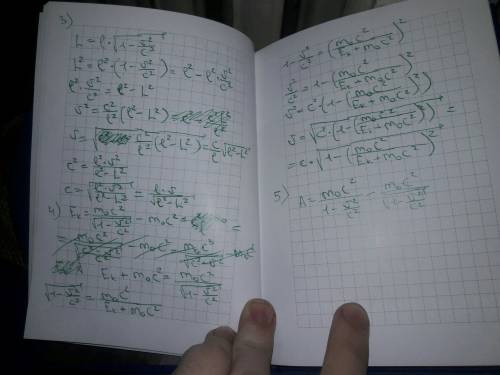 3)
L = l·√(1 - v²/c²)
L² = l²·(1 - v²/c²) = l² - l²·v²/c²
l²·v²/c² = l² - L²
v² = c²/l² (l² - L²)
v = √(c²/l² (l² - L²)) = c/l √(l² - L²)
c² = l²·v²/(l² - L²)
c = √(l²·v²/(l² - L²)) = l·v/√(l² - L²)
4) Eₖ = m₀c²/√(1 - v²/c²) - m₀c² =
Eₖ + m₀c² = m₀c²/√(1 - v²/c²)
√(1 - v²/c²) = m₀c²/(Eₖ + m₀c²)
1 - v²/c² = (m₀c²/(Eₖ + m₀c²))²
v²/c² = 1 - (m₀c²/(Eₖ + m₀c²))²
v² = c²·(1 - (m₀c²/(Eₖ + m₀c²))²)
v = √(c²·(1 - (m₀c²/(Eₖ + m₀c²))²)) =
= c·√(1 - (m₀c²/(Eₖ + m₀c²))²)
5) A = m₀c²/(1 - v²/c²) - m₀c²/√(1 - v²/c²)